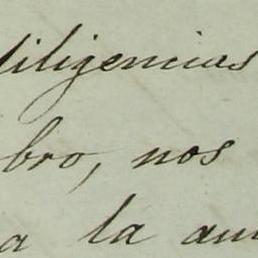 diligencias
bro, nos
a la au